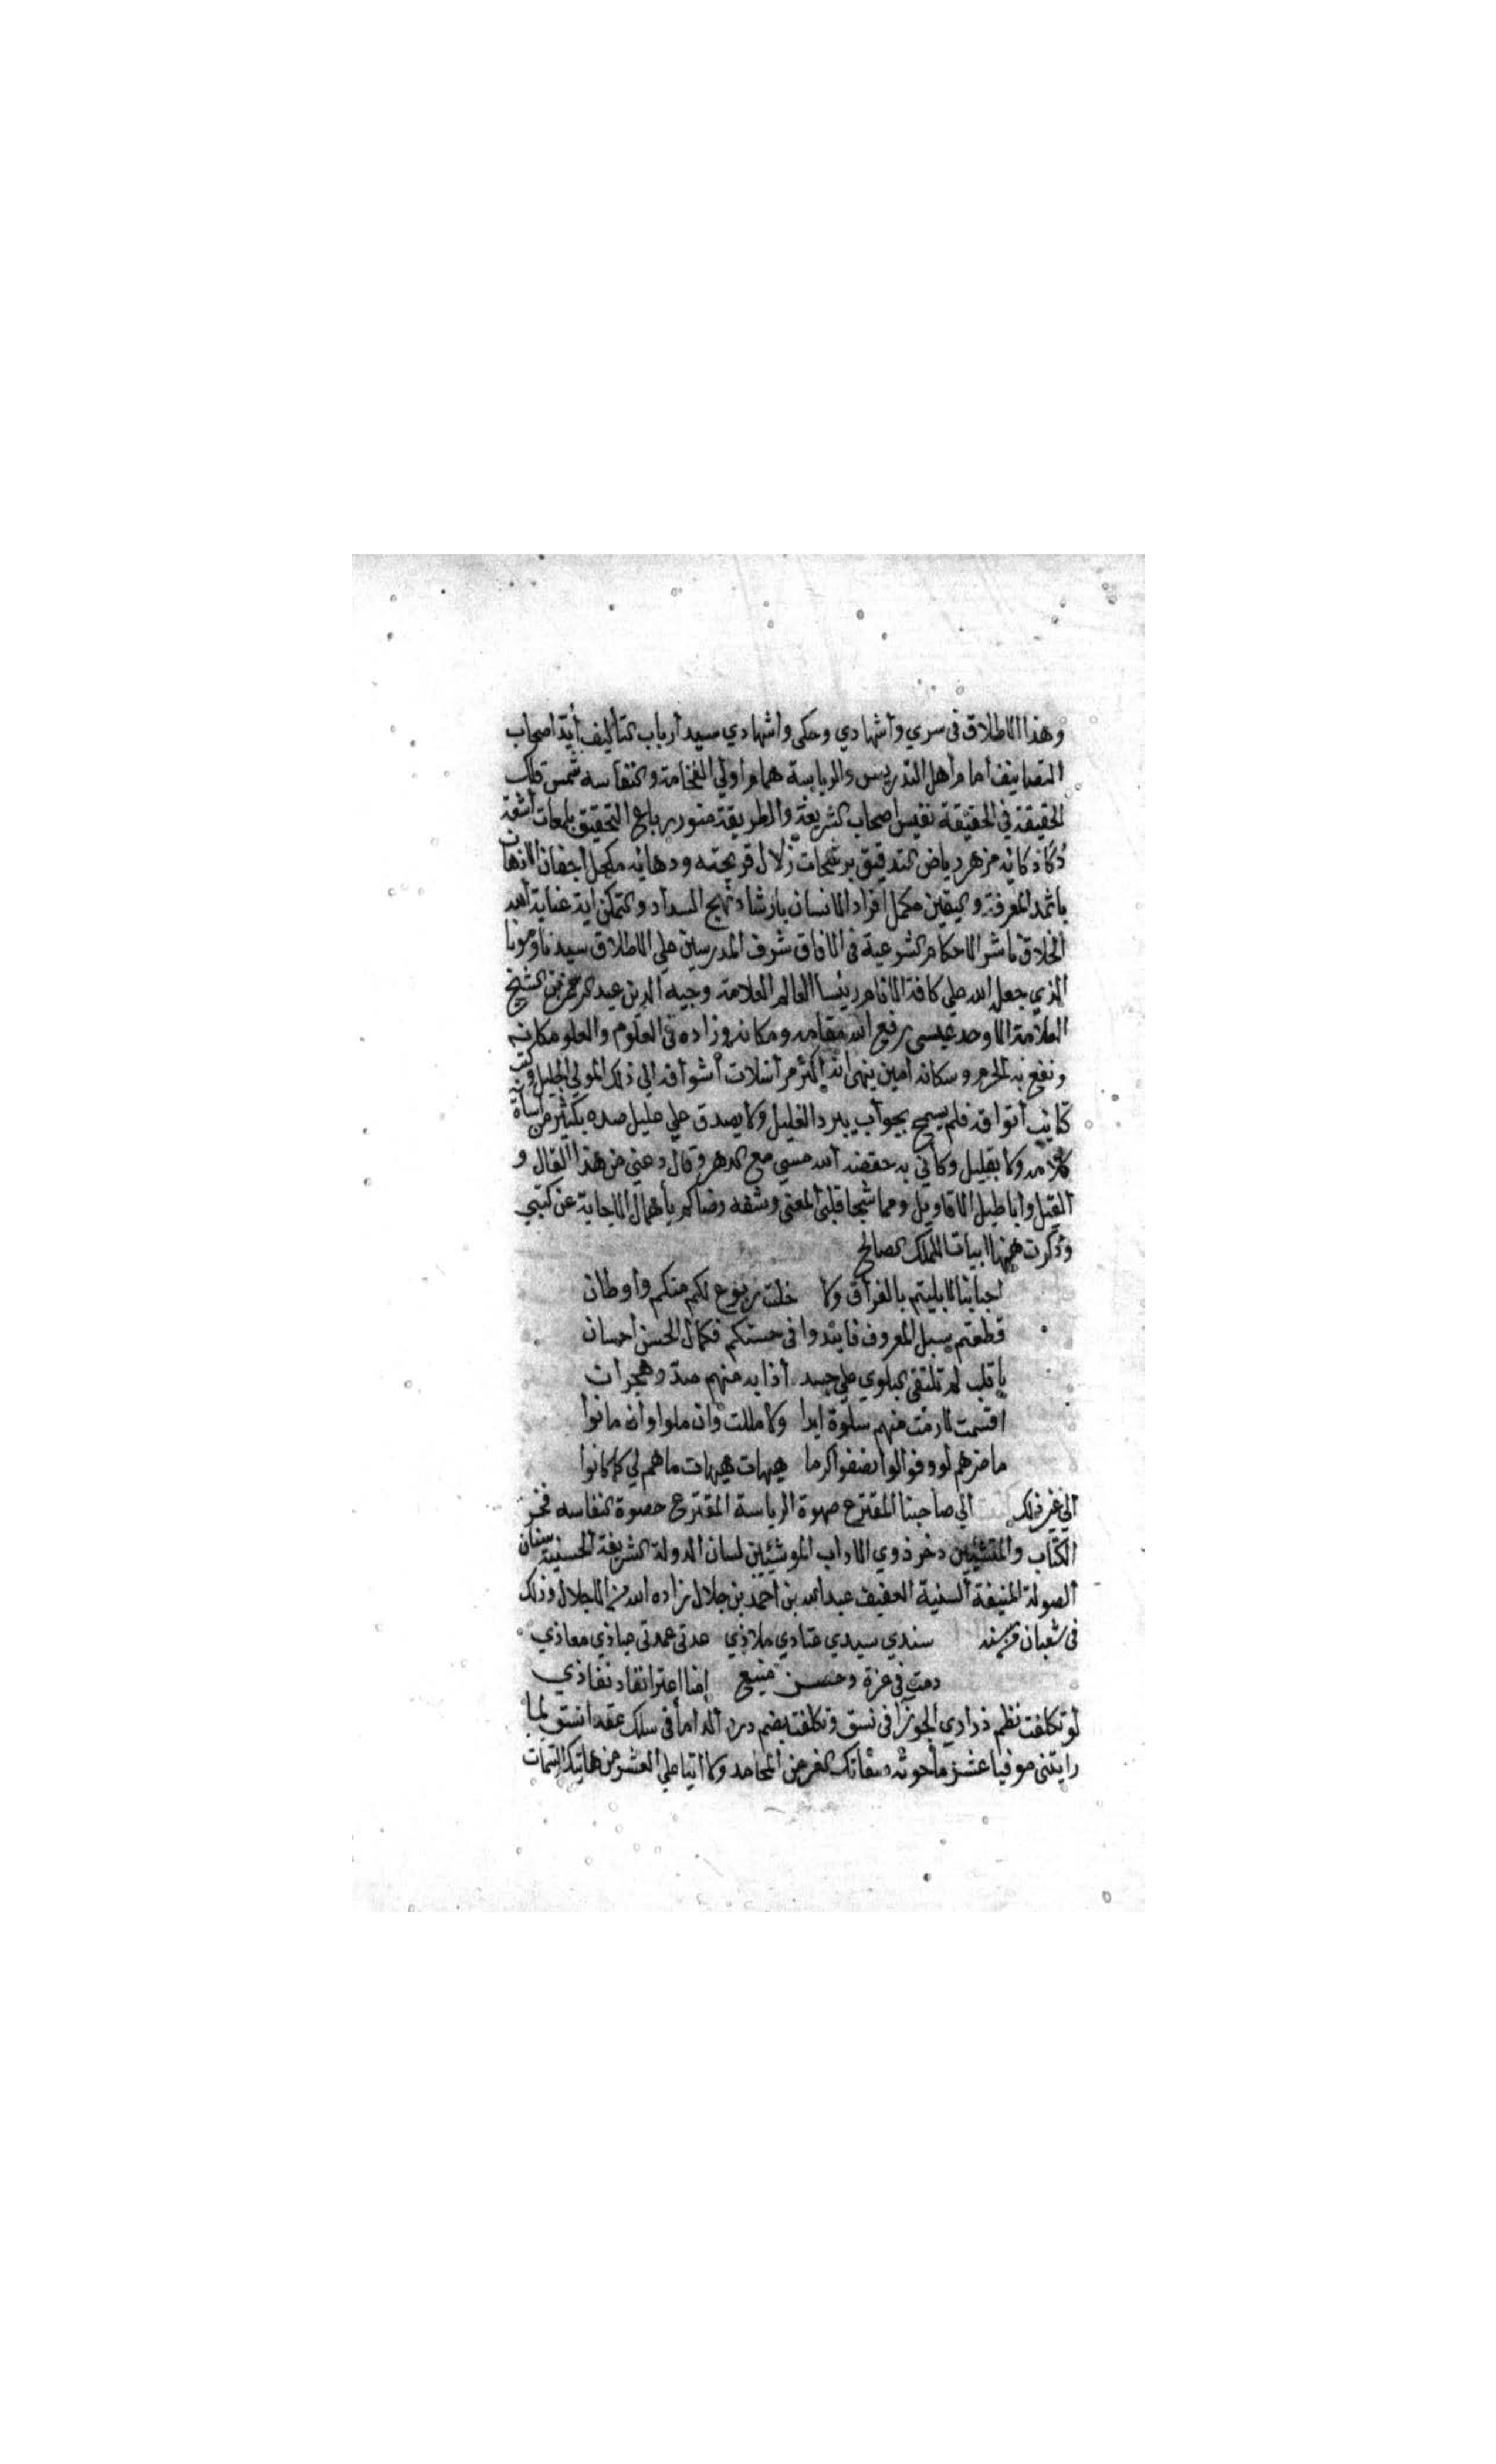 وهذا الاطلاق في سري واشهادي وحكى واشهادي سيد أرباب التأليف أيّد اصحاب
التصانيف امام أهل التدريس والرياسة همام اولي الفخامة والنفاسه شمس فلك
الحقيقة في الحقيقة نفيس اصحاب الشريعة والطريقة منور رباع التحقيق بلمعات أشعة
ذكاذكائه مزهر رياض التدقيق برشحات زلال قريحته ودهائه مكحل اجفان الاذهان
باثمد المعرفة واليقين مكمل افراد الانسان بارشاد نهج السداد والتمكن اية عناية الله
الخلاق ناشر الاحكام الشرعية في الافاق شرف المدرسين علي الاطلاق سيدنا ومولانا
الذي جعله الله علي كافة الانام رئيسا العالم العلامة وجيه الدين عبد الرحمن بن الشيخ
العلامة الاوحد عيسى رفع الله مقامه ومكانه وزاده في العلوم والعلو مكانه
ونفع به الحرم وسكانه امين ينهى انه أكثر مراسلات أشواقه الي ذلك المولي الجليل وكتب
كتايب أتواقه فلم يسمح بجواب يبرد الغليل ولا يصدق علي عليل صده بكثير من اساة
كلامه ولا بقليل وكأني به حفظه الله مشي مع الدهر وقال دعني من هذا القال و
القيل واباطيل الاقاويل ومما شجا قلبي المعنى وشفه رضاكم بأهمال الاجابة عن كتبي
وذكرت ههنا ابياتا للملك الصالح
احبابنا لا بليتم بالفراق ولا خلت ربوع لكم منكم وأوطان
قطعتم سبل المعروف فابتدوا في حسنكم فكمال الحسن أحسان
يا قلب لم تلتقى البلوي علي جسد أذابه منهم صدّ وهجران
اقسمت لا رمت منهم سلوة ابدا ولا مللت وان ملوا وان مانوا
ماضرهم لو وفوا لو انصفوا كرما هيهات هيهات ماهم لي كما كانوا
الي غير ذلك وكتبت الي صاحبنا المقترع صهوة الرياسة المقترع حصوة النفاسه فخر
الكتاب والمنشيين ذخر ذوي الاداب الموشيين لسان الدولة الشريفة الحسنية سنان
الصولة المنيفة السنية العفيف عبدالله بن احمد بن جلال زاده الله من الاجلال وذلك
في شعبان سنه سندي سيدي عتادي ملاذي عدتى عمدتى عياذي معاذي
دمت في عزة وحسن منيع
لو تكلفت نظم ذرادي الجوزا في نسق وتكلفت بضم درر الداما في سلك عقد انتسق لما
رايتنى موفيا عشر ماحوته صفاتك الغر من المحامد ولا اتيا علي العشر من هاتيك السمات